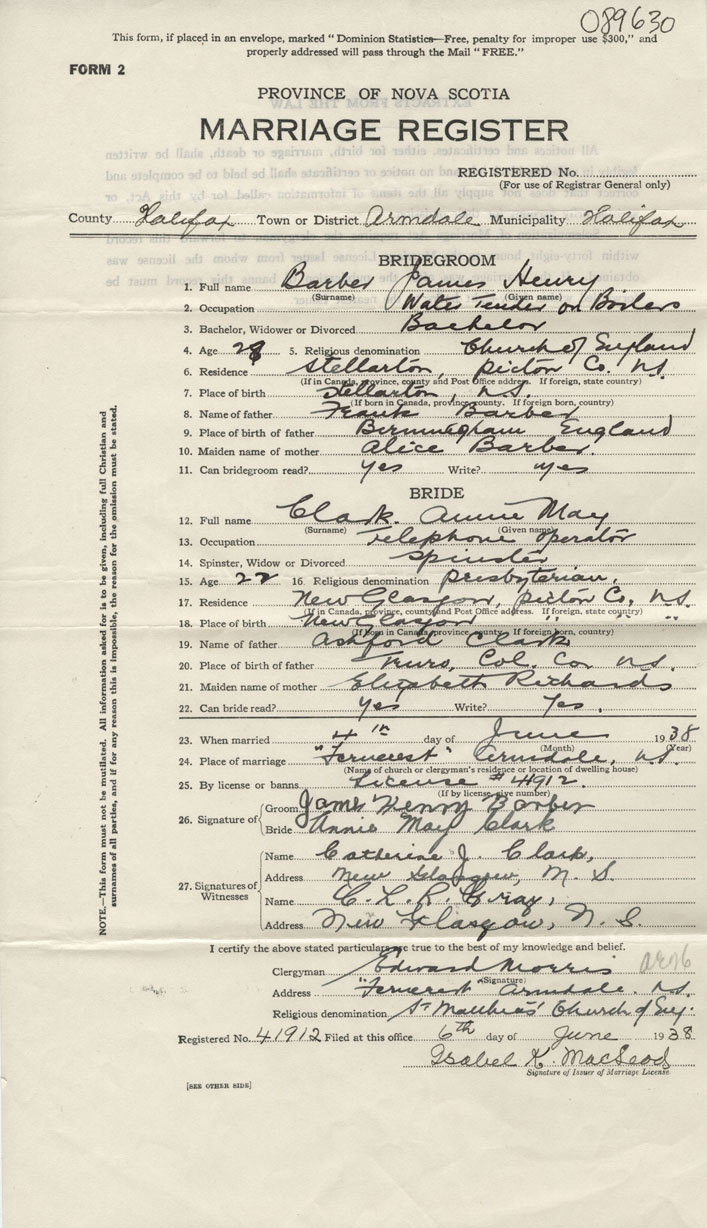 089630
This form, if placed in an envelope, marked "Dominion Statistics—Free, penalty for improper use $300," and
properly addressed will pass through the Mail "FREE."
FORM 2
PROVINCE OF NOVA SCOTIA
MARRIAGE REGISTER
REGISTERED No.
(For use of Registrar General only)
County Halifax Town or District Armdale Municipality Halifax
BRIDEGROOM
1. Full name Barber James Henry
(Surname) (Given name)
2. Occupation Water Tender on Boilers
3. Bachelor, Widower or Divorced Bachelor
4. Age 28 5. Religious denomination Church of England
6. Residence Stellarton, Pictou Co. N.S.
(If in Canada, province, county and Post Office address. If foreign, state country)
7. Place of birth Stellarton, N.S.
(If born in Canada, province, county. If foreign born, country)
8. Name of father Frank Barber
9. Place of birth of father Birmingham England
10. Maiden name of mother Alice Barber.
11. Can bridegroom read? yes Write? yes
BRIDE
12. Full name Clark. Annie May
(Surname) (Given name)
13. Occupation Telephone Operator
14. Spinster, Widow or Divorced Spinster
15. Age 22 16. Religious denomination Presbyterian.
17. Residence New Glasgow, Pictou Co, N.S.
(If in Canada, province, county and Post Office address. If foreign, state country)
18. Place of birth New Glasgow " " "
(If born in Canada, province, county. If foreign born, country)
19. Name of father Ashford Clark
20. Place of birth of father Truro, Col. Co. N.S.
21. Maiden name of mother Elizabeth Richards
22. Can bride read? Yes Write? Yes.
23. When married 4th day of June 1938
(Month) (Year)
24. Place of marriage "Ferncrest" Armdale, N.S.
(Name of church or clergyman's residence or location of dwelling house)
25. By license or banns License # 41912.
(If by license, give number)
26. Signature of Groom James Henry Barber
Bride Annie May Clark
27. Signatures of Witnesses
Name Catherine J. Clark,
Address New Glasgow, N. S.
Name C. L. R. Gray,
Address New Glasgow, N. S.
I certify the above stated particulars are true to the best of my knowledge and belief.
Clergyman Edward Morris
(Signature)
Address "Ferncrest" Armdale. N.S.
Religious denomination St Matthias' Church of Eng.
Registered No. 41912 Filed at this office 6th day of June 1938
Isabel K. MacLeod
Signature of Issuer of Marriage License
[SEE OTHER SIDE]
NOTE.—This form must not be mutilated. All information asked for is to be given, including full Christian and
surnames of all parties, and if for any reason this is impossible, the reason for the omission must be stated.